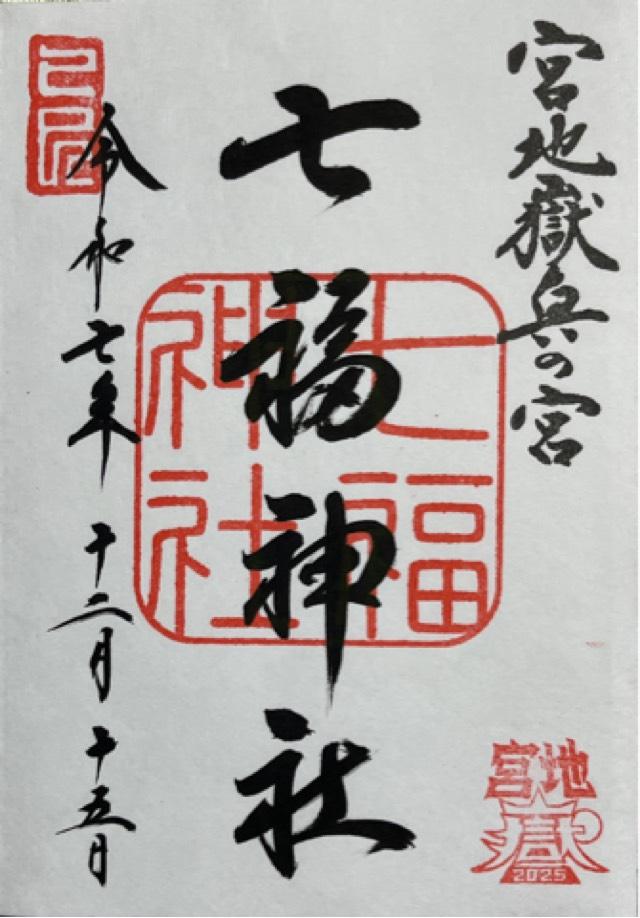 宮地嶽奥の宮
七福神社
七福
神社
令和七年 十二月 十五日
宮地
嶽
2025